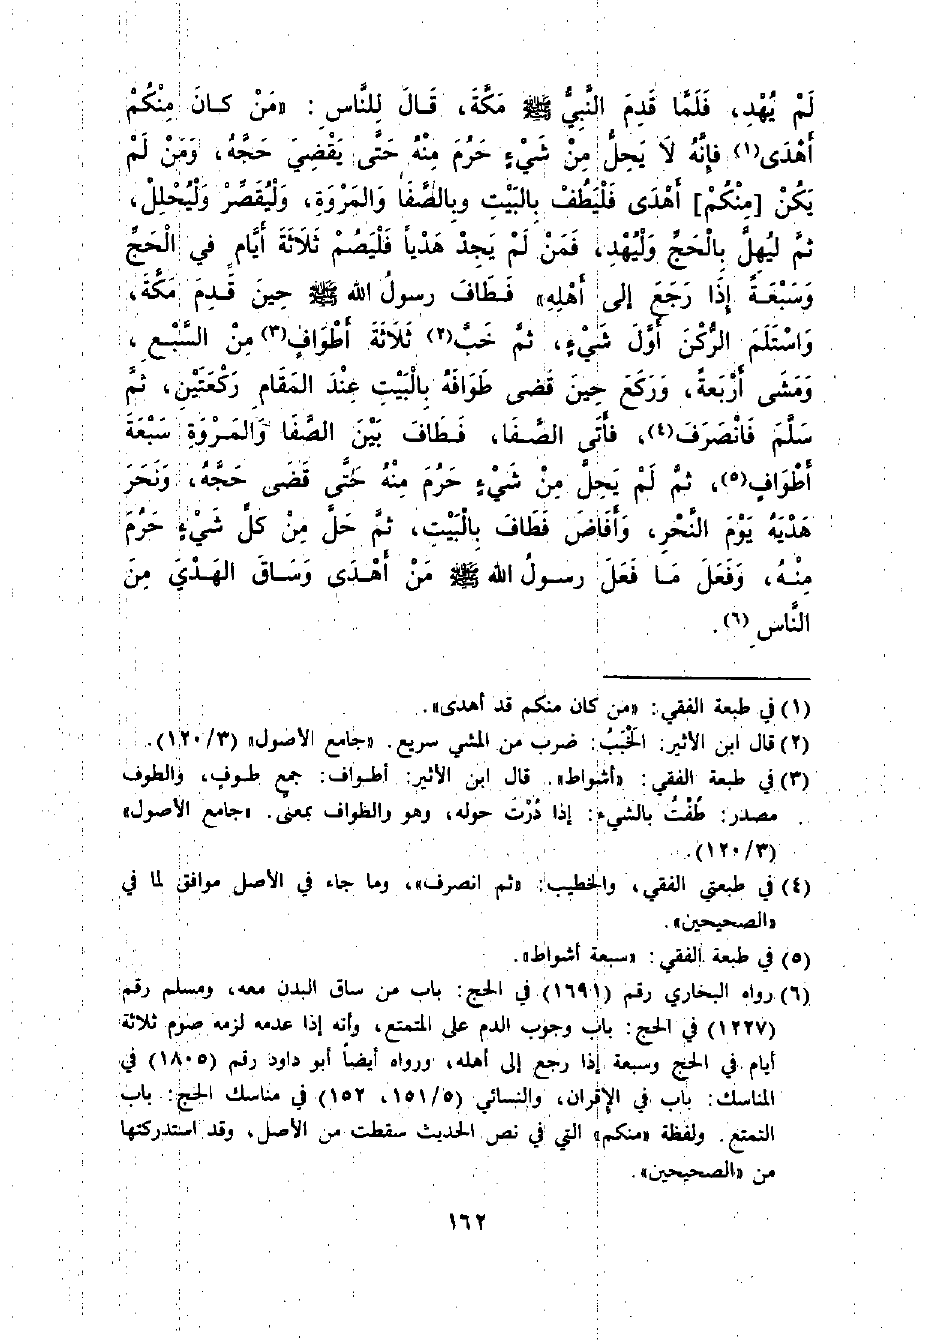 لَمْ يُهْدِ، فَلَمَّا قَدِمَ النَّبِيُّ ﷺ مَكَّةَ، قَالَ لِلنَّاسِ : «مَنْ كَانَ مِنْكُمْ
أَهْدَى(١) فإِنَّهُ لاَ يَحِلُّ مِنْ شَيْءٍ حَرُمَ مِنْهُ حَتَّى يَقْضِيَ حَجَّهُ، وَمَنْ لَمْ
يَكُنْ [مِنْكُمْ] أَهْدَى فَلْيَطُفْ بِالبَيْتِ وبِالصَّفَا وَالمَرْوَةِ، وَلْيُقَصِّرْ وَلْيُحْلِلْ،
ثمَّ لِيُهِلَّ بِالْحَجِّ وَلْيُهْدِ، فَمَنْ لَمْ يَجِدْ هَدْياً فَلْيَصُمْ ثَلاَثَةَ أَيَّامٍ في الْحَجِّ
وَسَبْعَةً إِذَا رَجَعَ إلى أَهْلِهِ» فَطَافَ رسولُ الله ﷺ حِينَ قَدِمَ مَكَّةَ،
وَاسْتَلَمَ الرُّكْنَ أَوَّلَ شَيْءٍ، ثمَّ خَبَّ(٢) ثَلاَثَةَ أَطْوَافٍ(٣) مِنْ السَّبْعِ،
وَمَشَى أَرْبَعةً، وَرَكَعَ حِينَ قَضى طَوَافَهُ بِالْبَيْتِ عِنْدَ المَقَامِ رَكْعَتَيْنِ، ثمَّ
سَلَّمَ فَانْصَرَفَ(٤)، فأَتَى الصَّفَا، فَطَافَ بَيْنَ الصَّفَا وَالمَرْوَةِ سَبْعَةَ
أَطْوَافٍ(٥)، ثمَّ لَمْ يَحِلَّ مِنْ شَيْءٍ حَرُمَ مِنْهُ حَتَّى قَضَى حَجَّهُ، وَنَحَرَ
هَدْيَهُ يَوْمَ النَّحْرِ، وَأَفَاضَ فَطَافَ بِالْبَيْتِ، ثمَّ حَلَّ مِنْ كلِّ شَيْءٍ حَرُمَ
مِنْهُ، وَفَعَلَ مَا فَعَلَ رسولُ الله ﷺ مَنْ أَهْدَى وَسَاقَ الهَدْيَ مِنَ
النَّاسِ(٦).
(١) في طبعة الفقي: «من كان منكم قد أهدى».
(٢) قال ابن الأثير: الخَبَبُ: ضرب من المشي سريع. «جامع الأصول» (٣/ ١٢٠).
(٣) في طبعة الفقي: «أشواط». قال ابن الأثير: أطواف: جمع طوف، والطوف
مصدر: طُفْتُ بالشيء: إذا دُرْتَ حوله، وهو والطواف بمعنى. «جامع الأصول»
(٣/ ١٢٠).
(٤) في طبعتي الفقي، والخطيب: «ثم انصرف»، وما جاء في الأصل موافق لما في
«الصحيحين».
(٥) في طبعة الفقي: «سبعة أشواط».
(٦) رواه البخاري رقم (١٦٩١) في الحج: باب من ساق البدن معه، ومسلم رقم
(١٢٢٧) في الحج: باب وجوب الدم على المتمتع، وأنه إذا عدمه لزمه صوم ثلاثة
أيام في الحج وسبعة إذا رجع إلى أهله، ورواه أيضاً أبو داود رقم (١٨٠٥) في
المناسك: باب في الإقران، والنسائي (٥/ ١٥١، ١٥٢) في مناسك الحج: باب
التمتع. ولفظة «منكم» التي في نص الحديث سقطت من الأصل، وقد استدركتها
من «الصحيحين».
١٦٢